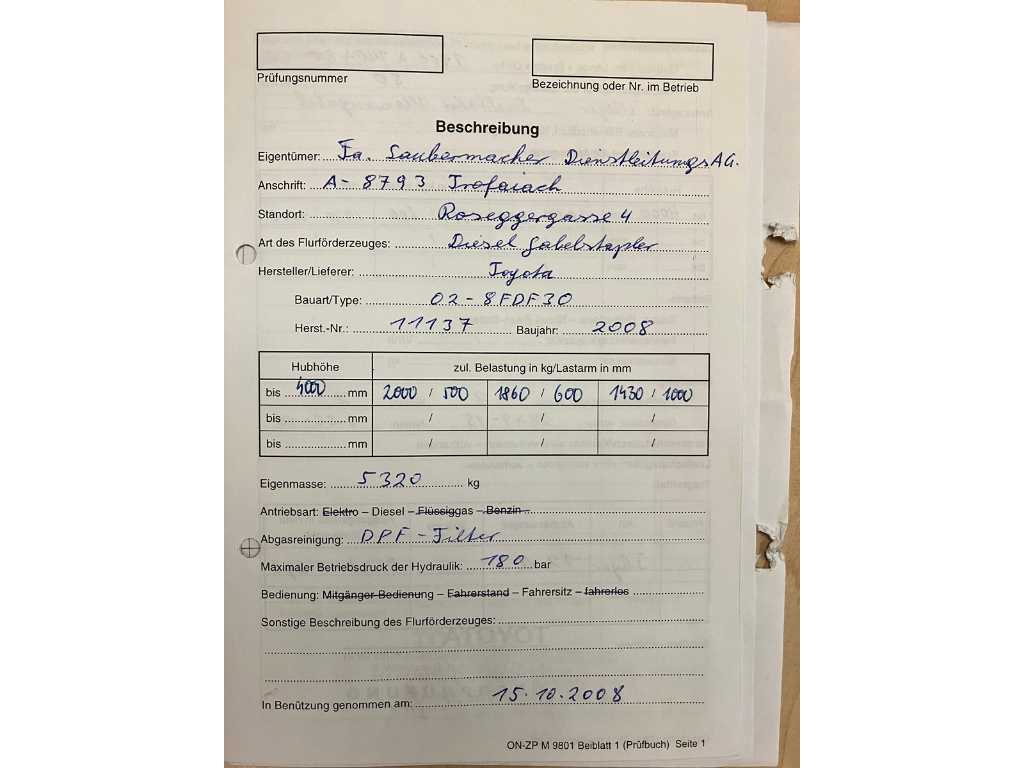 Prüfungsnummer
Bezeichnung oder Nr. im Betrieb
Beschreibung
Eigentümer: Fa. Saubermacher Dienstleitungs AG.
Anschrift: A-8793 Trofaiach
Standort: Roseggergasse 4
Art des Flurförderzeuges: Diesel Gabelstapler
Hersteller/Lieferer: Toyota
Bauart/Type: 02-8FDF30
Herst.-Nr.: 11137 Baujahr: 2008
Hubhöhe zul. Belastung in kg/Lastarm in mm
bis 4000 mm 2000 / 500 1860 / 600 1430 / 1000
bis mm / / /
bis mm / / /
Eigenmasse: 5320 kg
Antriebsart: Elektro – Diesel – Flüssiggas – Benzin
Abgasreinigung: DPF-Filter
Maximaler Betriebsdruck der Hydraulik: 180 bar
Bedienung: Mitgänger-Bedienung – Fahrerstand – Fahrersitz – fahrerlos
Sonstige Beschreibung des Flurförderzeuges:
In Benützung genommen am: 15.10.2008
ON-ZP M 9801 Beiblatt 1 (Prüfbuch) Seite 1